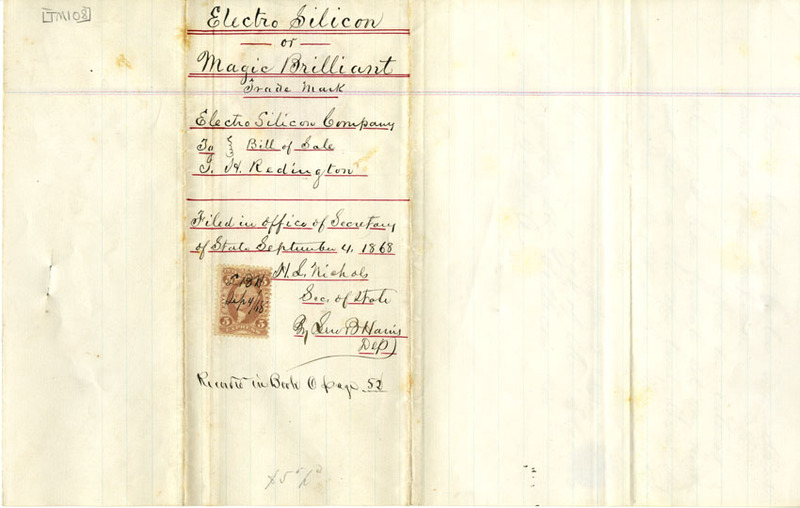 TM108
Electro Silicon
or
Magic Brilliant
Trade Mark
Electro Silicon Company
To } Bill of Sale
J. H. Redington
Filed in office of Secretary
of State September 4, 1868
H. L. Nichols
Sec. of State
By Geo B Harris
Dep
5
in Book page 52